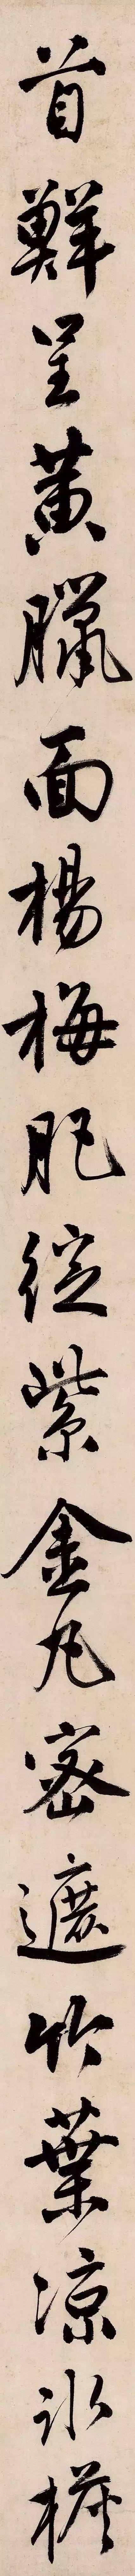 首鮮呈黃臘面楊梅肥綻紫金丸密遮竹葉凉冰